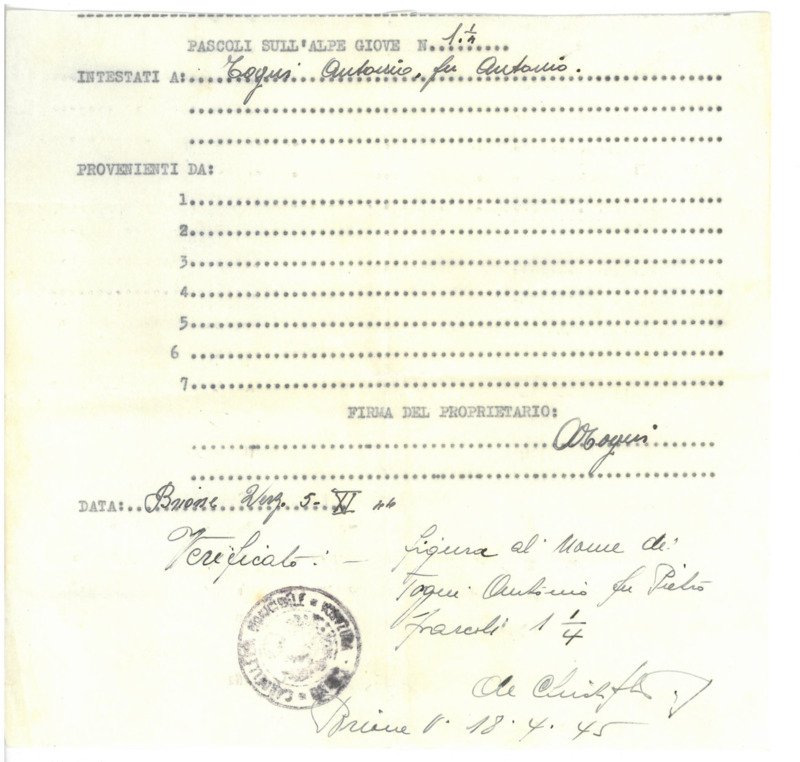 PASCOLI SULL'ALPE GIOVE N. 1 1/4
INTESTATI A: Togni Antonio, fu Antonio.
PROVENIENTI DA:
1
2
3
4
5
6
7
FIRMA DEL PROPRIETARIO:
A Togni
DATA: Brione Verz. 5-XI 44
Verificato: — figura al nome di:
Togni Antonio fu Pietro
frascoli 1 1/4
de
Brione V. 18.4.45